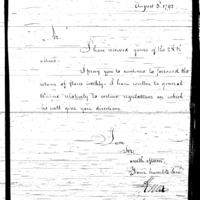 August 3d 1792
Sir
I have received yours of the 28th
I pray you to continue to forward the
returns of those weekly. I have written to general
relatively to certain regulations on which
he will give you directions.
I am
Sir
with esteem
Your humble Serv